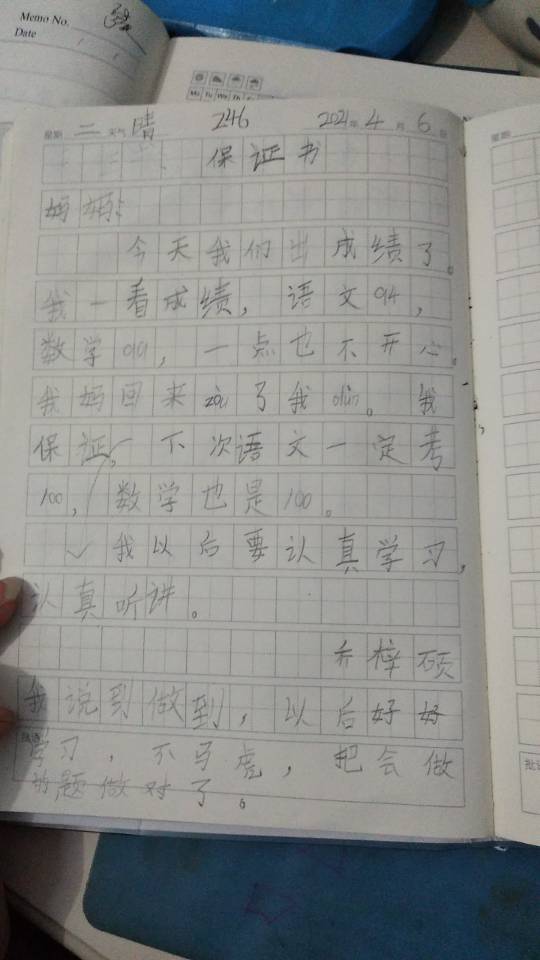 Memo No.
Date
Mo Tu We Th
星期 二 天气 晴 246 2021年 4 月 6 日
保证书
妈妈:
今天我们出成绩了。
我一看成绩,语文94,
数学99,一点也不开心。
我妈回来zòu了我dùn。我
保证,下次语文一定考
100,数学也是100。
我以后要认真学习,
认真听讲。
乔梓硕
我说到做到,以后好好
学习,不马虎,把会做
的题做对了。
星期
批语